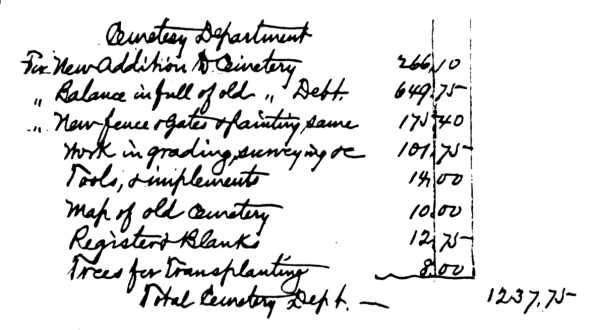 Cemetery Department
For New Addition to Cemetery 266.10
" Balance in full of old " Debt. 649.75
" New fence & Gates & painting same 175.40
Work in grading, surveying &c 101.75
Tools, & implements 14.00
Map of old Cemetery 10.00
Register & Blanks 12.75
Trees for Transplanting 8.00
Total Cemetery Dept. — 1237.75